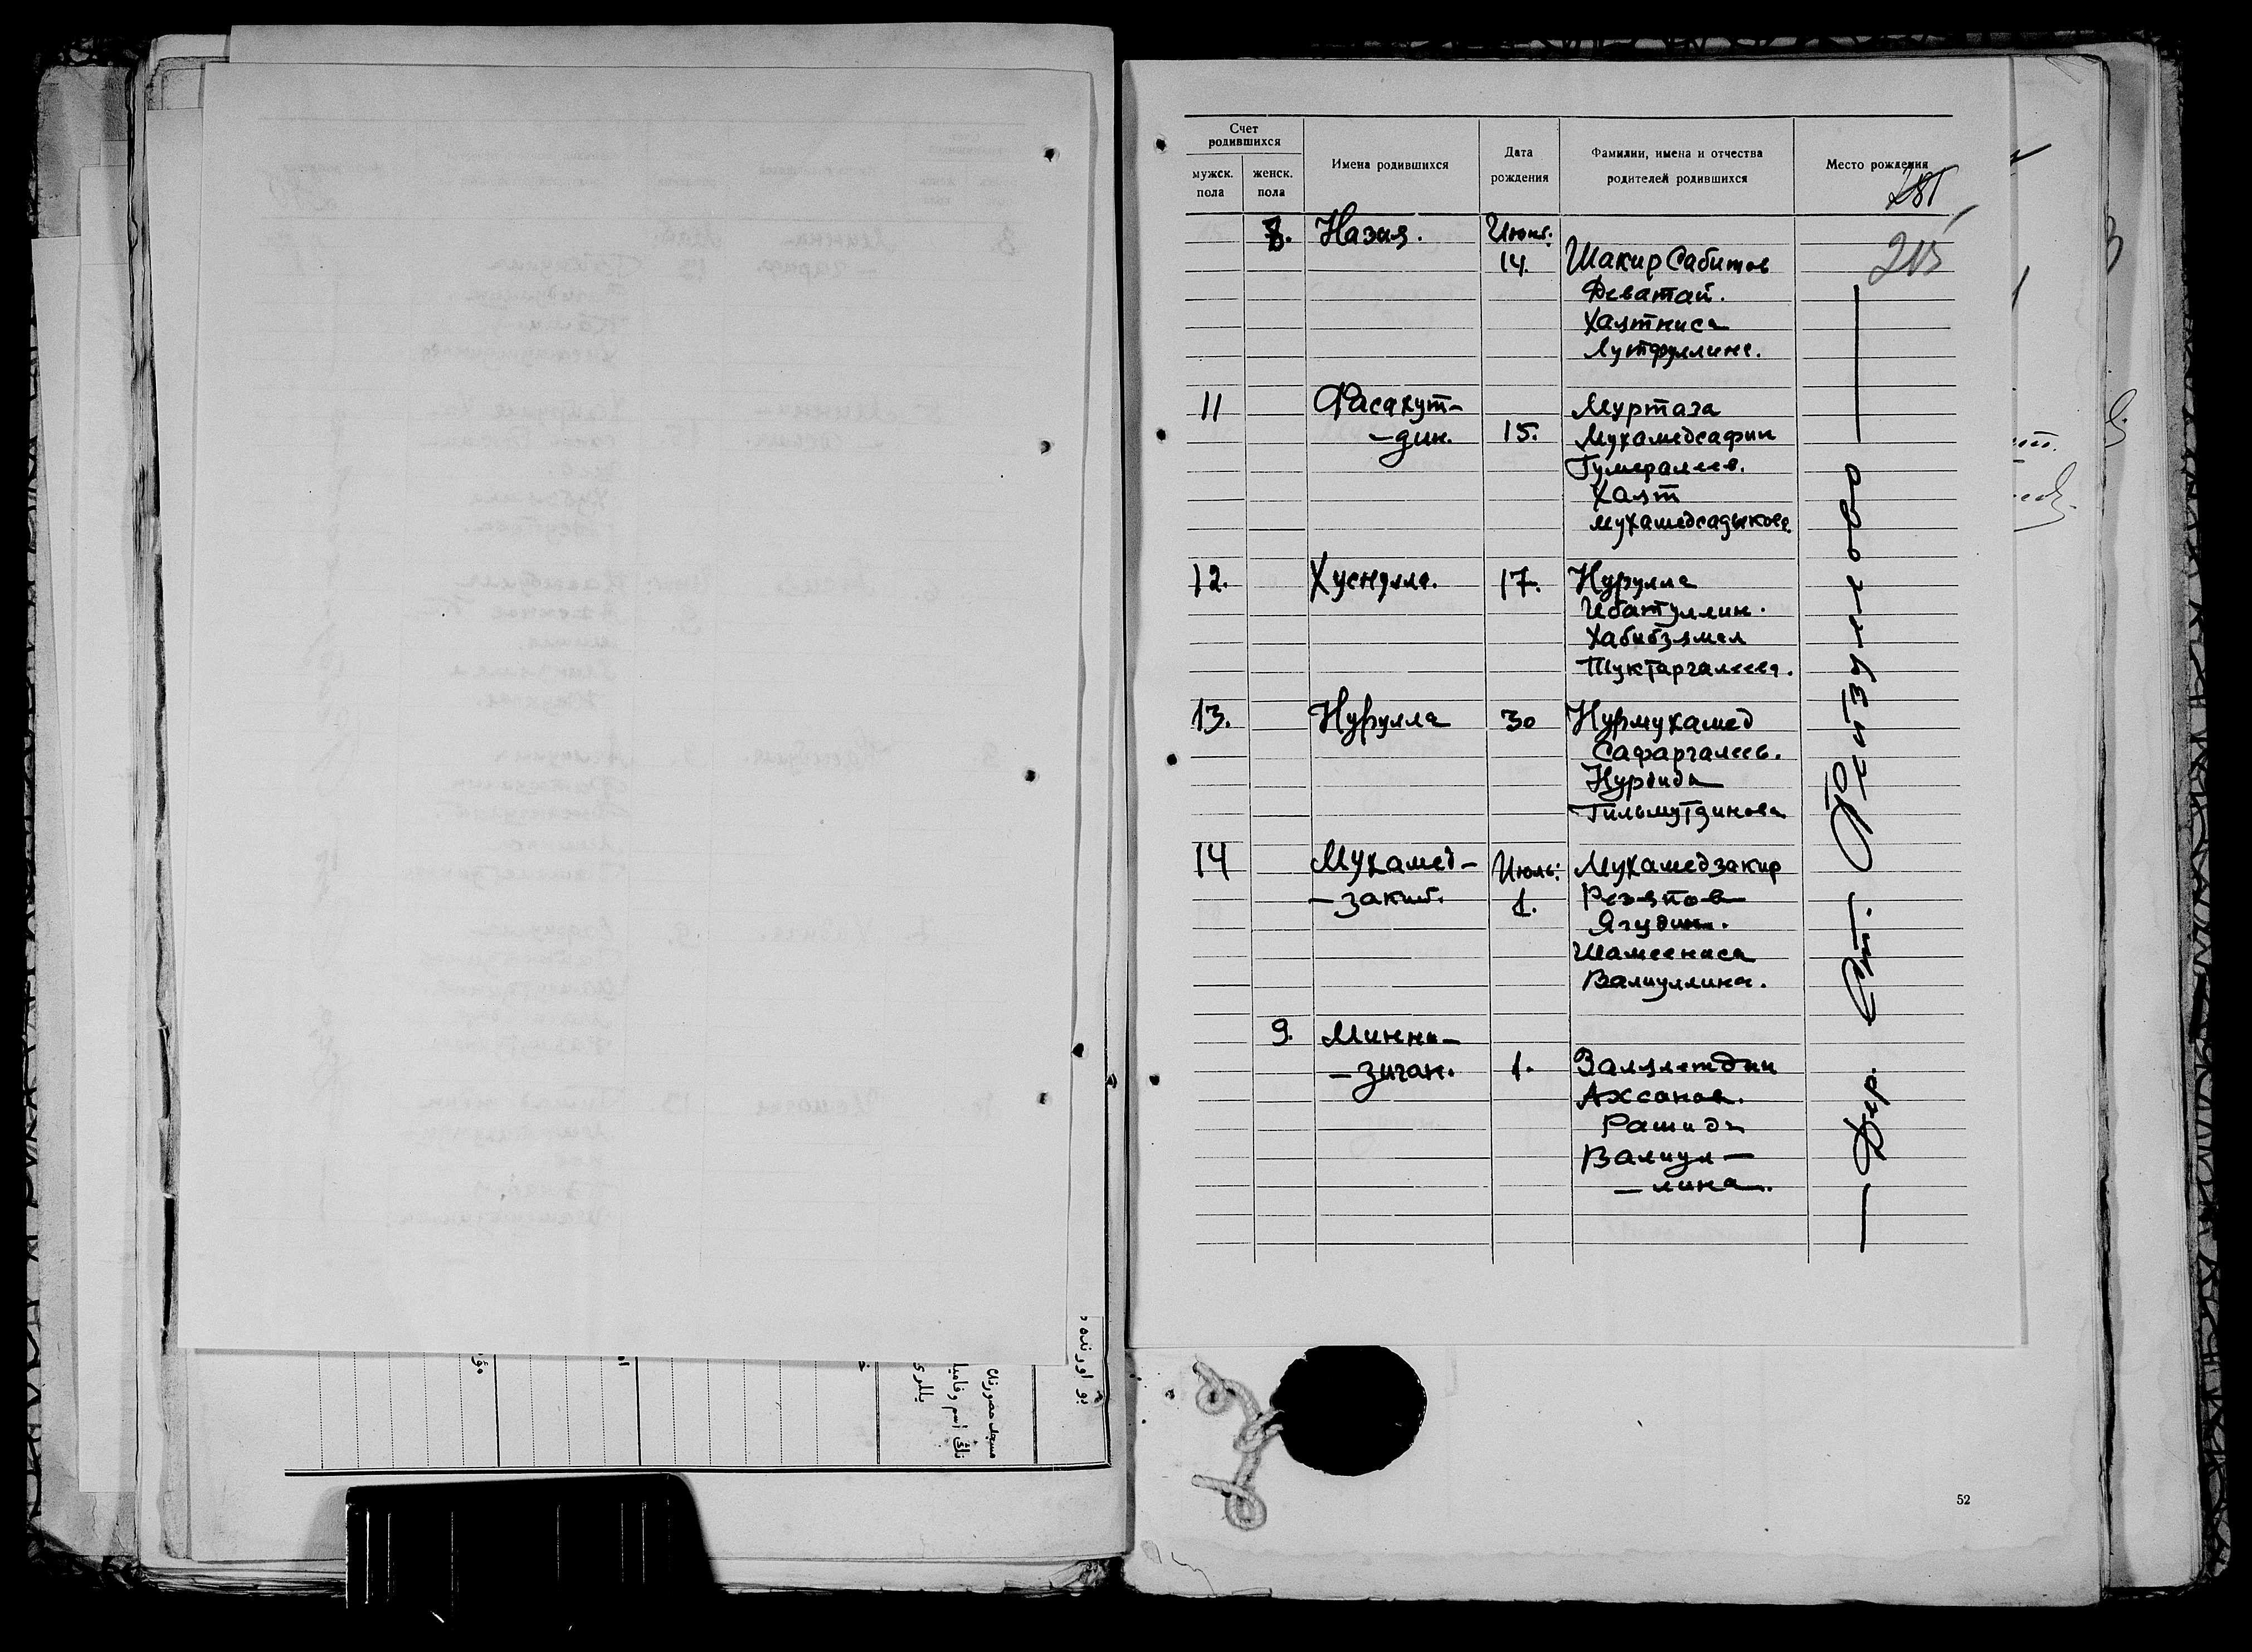 Счет
родившихся
мужск.
пола
женск.
пола
Имена родившихся
Дата
рождения
Фамилии, имена и отчества
родителей родившихся
Место рождения
281
215
8. Назия. Июнь:
14. Шакир Сабитов
Деватай.
Хаятниса
Лутфуллина.
11 Фасахут-
-дин. 15. Муртаза
Мухамедсафин
Гумералеев.
Хаят
Мухамедсадыкова
12. Хуснулла. 17. Нурулла
Ибатуллин.
Хабибзямал
Туктаргалеева.
13. Нурулла 30 Нурмухамед
Сафаргалеев.
Нурвида
Гильмутдинова
14 Мухамед-
-закиб. Июль:
1. Мухамедзакир
Резяпов
Ягудин.
Шамсениса
Валиуллина.
9. Минни-
-зиган. 1. Залялетдин
Ахсанов.
Рашида
Валиул-
-лина.
— Дер. Ст.
52
بو اورنده
مسجد حضورنڭ
نڭ اسم وفاميا
يللرى